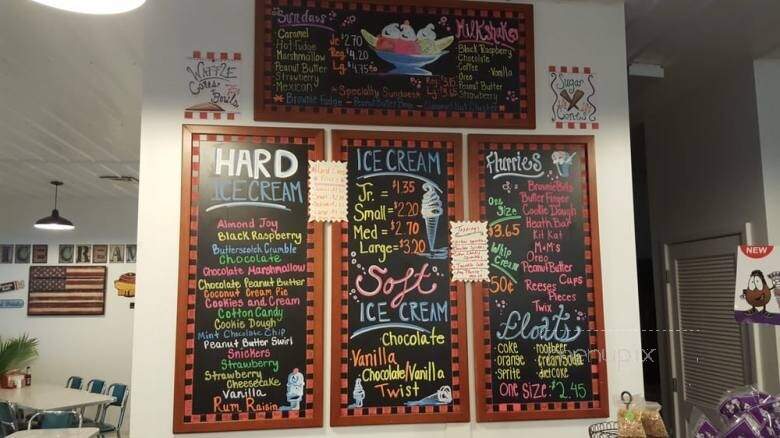 Sundaes
Caramel
Hot Fudge
Marshmallow
Peanut Butter
Strawberry
Mexican
Jr. $2.70
Reg. $4.20
Lg. $4.75
Specialty Sundaes
Brownie Fudge - Peanut Butter
Milkshakes
Black Raspberry
Chocolate
Coffee Vanilla
Oreo
Peanut Butter
Strawberry
WAFFLE
Cones
Bowls
Sugar
Cones
HARD
ICE CREAM
Almond Joy
Black Raspberry
Butterscotch Crumble
Chocolate
Chocolate Marshmallow
Chocolate Peanut Butter
Coconut Cream Pie
Cookies and Cream
Cotton Candy
Cookie Dough
Mint Chocolate Chip
Peanut Butter Swirl
Snickers
Strawberry
Strawberry
Cheesecake
Vanilla
Rum Raisin
ICE CREAM
Jr. = $1.35
Small = $2.20
Med = $2.70
Large = $3.20
Soft
ICE CREAM
Chocolate
Vanilla
Chocolate/Vanilla
Twist
Toppings
Flurries
One
Size
$3.65
Whip
Cream
50¢
Brownie Bits
Butter Finger
Cookie Dough
Heath Bar
Kit Kat
M&M's
Oreo
Peanut Butter
Cups
Reeses
Pieces
Twix
Floats
coke rootbeer
orange creamsoda
sprite diet coke
One Size: $2.45
ICE CREAM
NEW